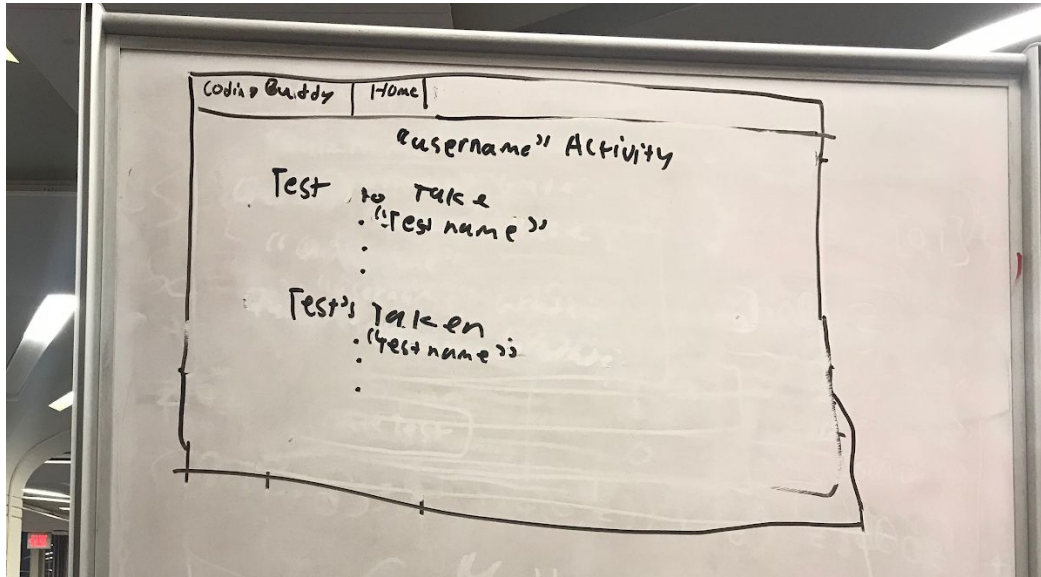 Coding Buddy Home
"username" Activity
Test to Take
"Test name"
Test's Taken
"Test name"